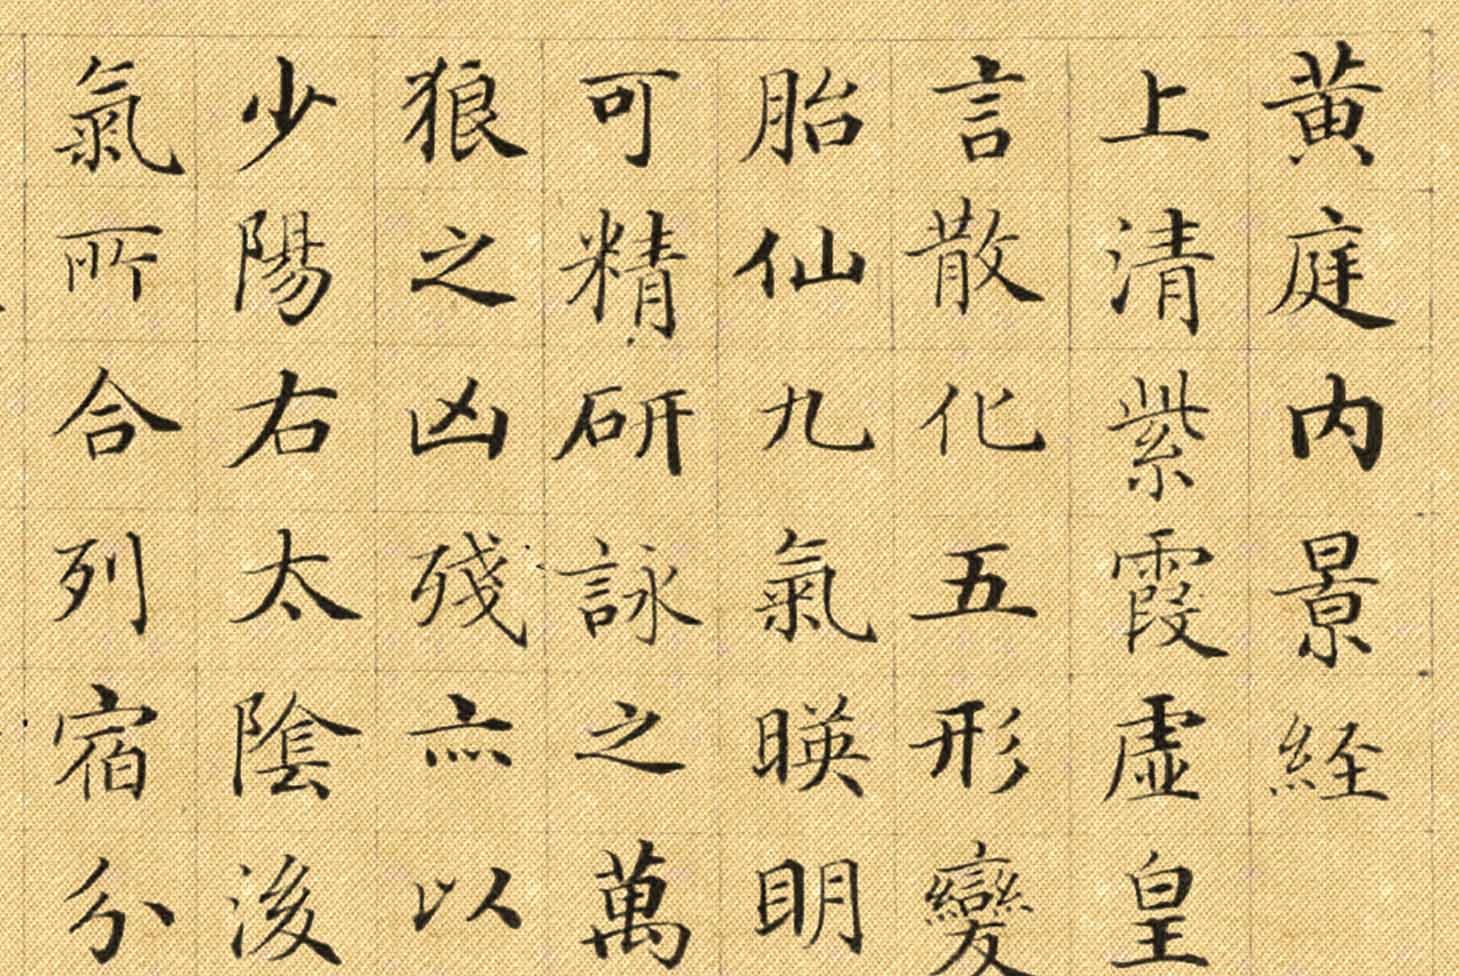 黄庭内景経
上清紫霞虛皇
言散化五形變
胎仙九氣暎明
可精研詠之萬
狼之凶殘亦以
少陽右太陰後
氣所合列宿分